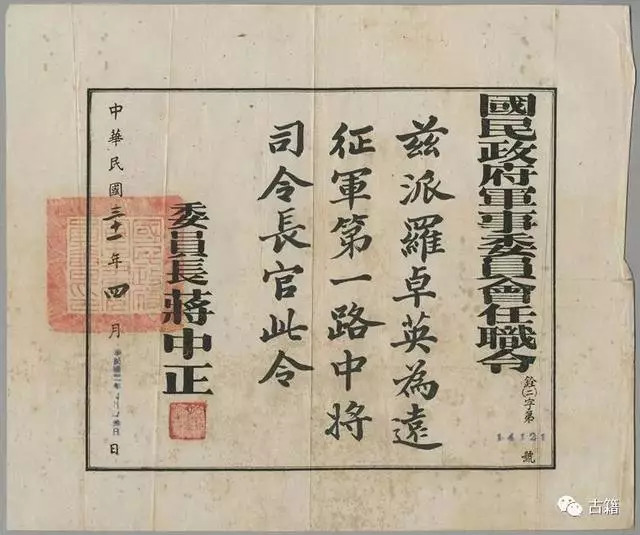 國民政府軍事委員會任職令
銓(二)字第
14121
號
茲派羅卓英為遠
征軍第一路中將
司令長官此令
委員長蔣中正
中華民國三十一年四月
日
古籍